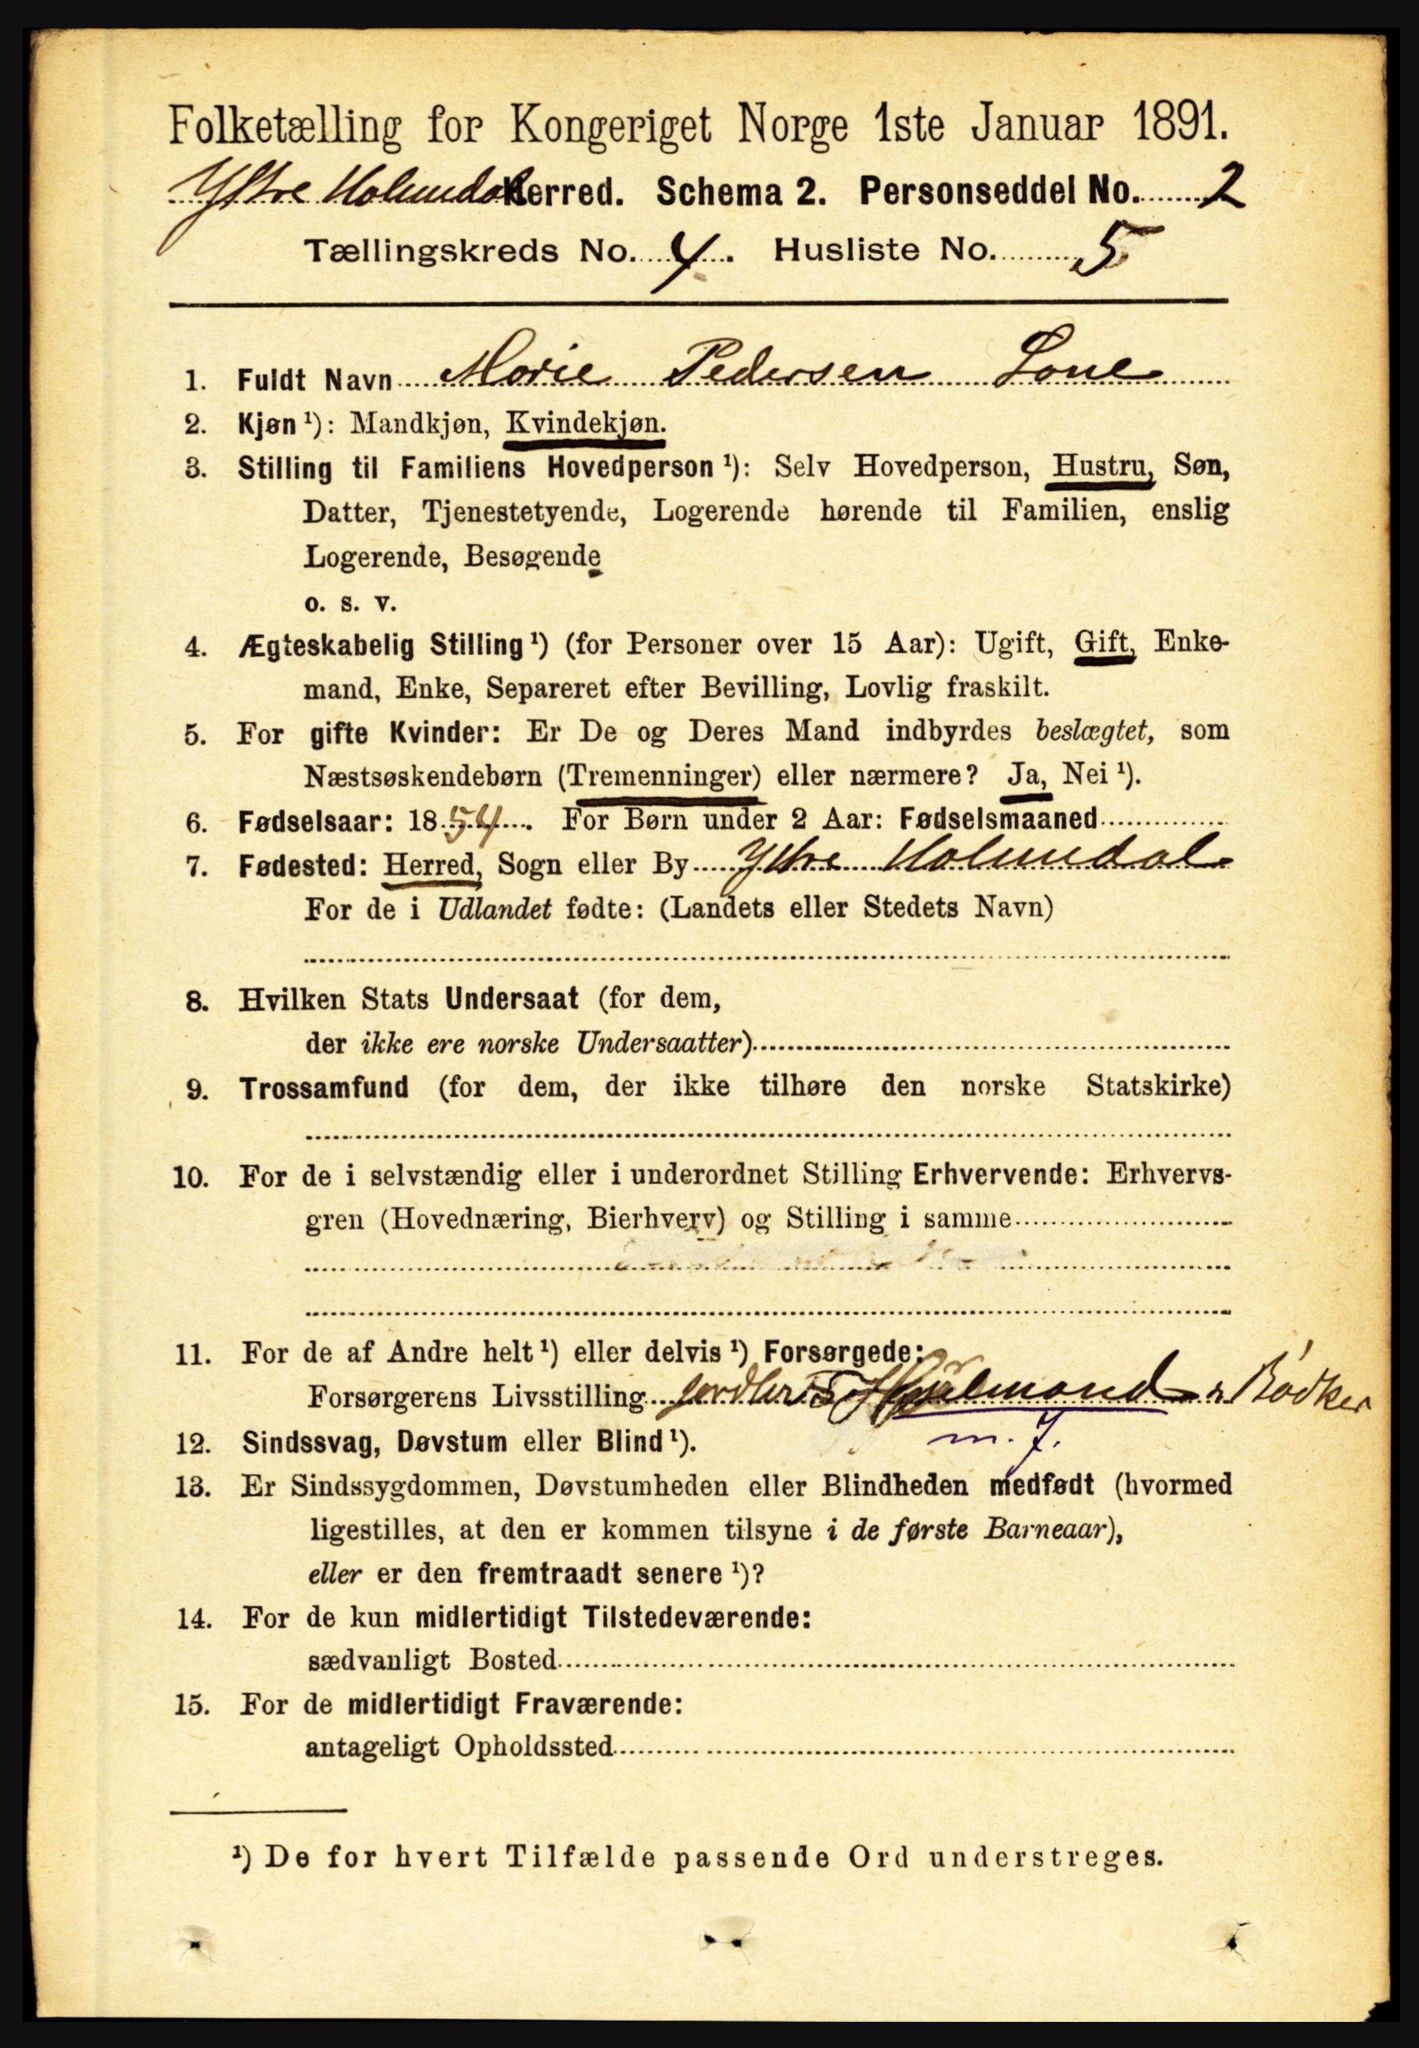 Folketælling for Kongeriget Norge 1ste Januar 1891.
Ystre Holmedal Herred. Schema 2. Personseddel No. 2
Tællingskreds No. 4. Husliste No. 5
1. Fuldt Navn Marie Pedersen Lone
2. Kjøn ¹): Mandkjøn, Kvindekjøn.
3. Stilling til Familiens Hovedperson ¹): Selv Hovedperson, Hustru, Søn,
Datter, Tjenestetyende, Logerende hørende til Familien, enslig
Logerende, Besøgende
o. s. v.
4. Ægteskabelig Stilling ¹) (for Personer over 15 Aar): Ugift, Gift, Enke-
mand, Enke, Separeret efter Bevilling, Lovlig fraskilt.
5. For gifte Kvinder: Er De og Deres Mand indbyrdes beslægtet, som
Næstsøskendebørn (Tremenninger) eller nærmere? Ja, Nei ¹).
6. Fødselsaar: 1854. For Børn under 2 Aar: Fødselsmaaned
7. Fødested: Herred, Sogn eller By Ystre Holmedal
For de i Udlandet fødte: (Landets eller Stedets Navn)
8. Hvilken Stats Undersaat (for dem,
der ikke ere norske Undersaatter)
9. Trossamfund (for dem, der ikke tilhøre den norske Statskirke)
10. For de i selvstændig eller i underordnet Stilling Erhvervende: Erhvervs-
gren (Hovednæring, Bierhverv) og Stilling i samme
11. For de af Andre helt ¹) eller delvis ¹) Forsørgede:
Forsørgerens Livsstilling Bødker
m. J.
12. Sindssvag, Døvstum eller Blind ¹).
13. Er Sindssygdommen, Døvstumheden eller Blindheden medfødt (hvormed
ligestilles, at den er kommen tilsyne i de første Barneaar),
eller er den fremtraadt senere ¹)?
14. For de kun midlertidigt Tilstedeværende:
sædvanligt Bosted
15. For de midlertidigt Fraværende:
antageligt Opholdssted
¹) De for hvert Tilfælde passende Ord understreges.